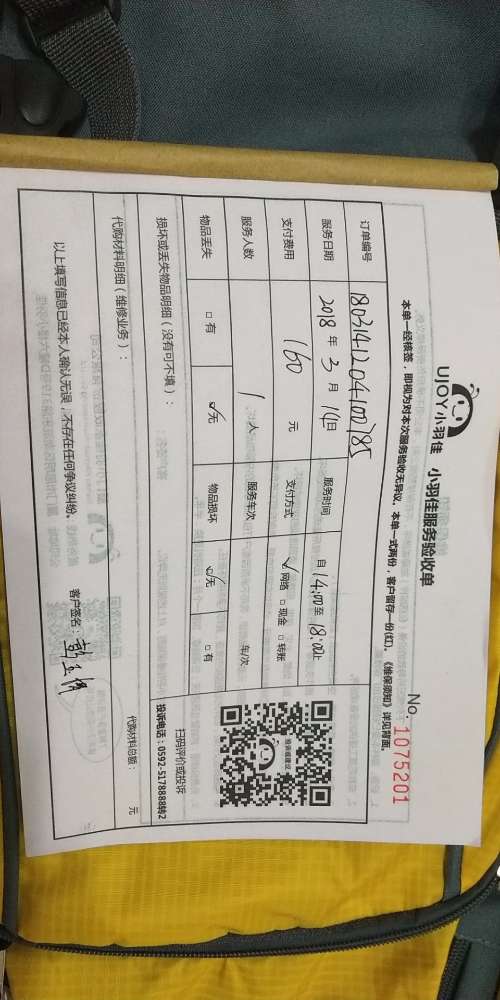 UJOY小羽佳 小羽佳服务验收单
No. 1075201
本单一经核签，即视为对本次服务验收无异议，本单一式两份，客户留存一份(红)。《维保须知》详见背面。
订单编号 1803141204100785
服务日期 2018 年 3 月 14日 服务时间 自 14:00至 18:00止
支付费用 160 元 支付方式 √网络 □现金 □转账
服务人数 1 人 服务车次 车/次
物品丢失 □有 √无 物品损坏 √无 □有
投诉或建议
扫码评价或投诉
投诉电话：0592-5178888转2
损坏或丢失物品明细（没有可不填）：
代购材料明细（维修业务）：
代购材料总额： 元
以上填写信息已经本人确认无误，不存在任何争议纠纷。
客户签名：